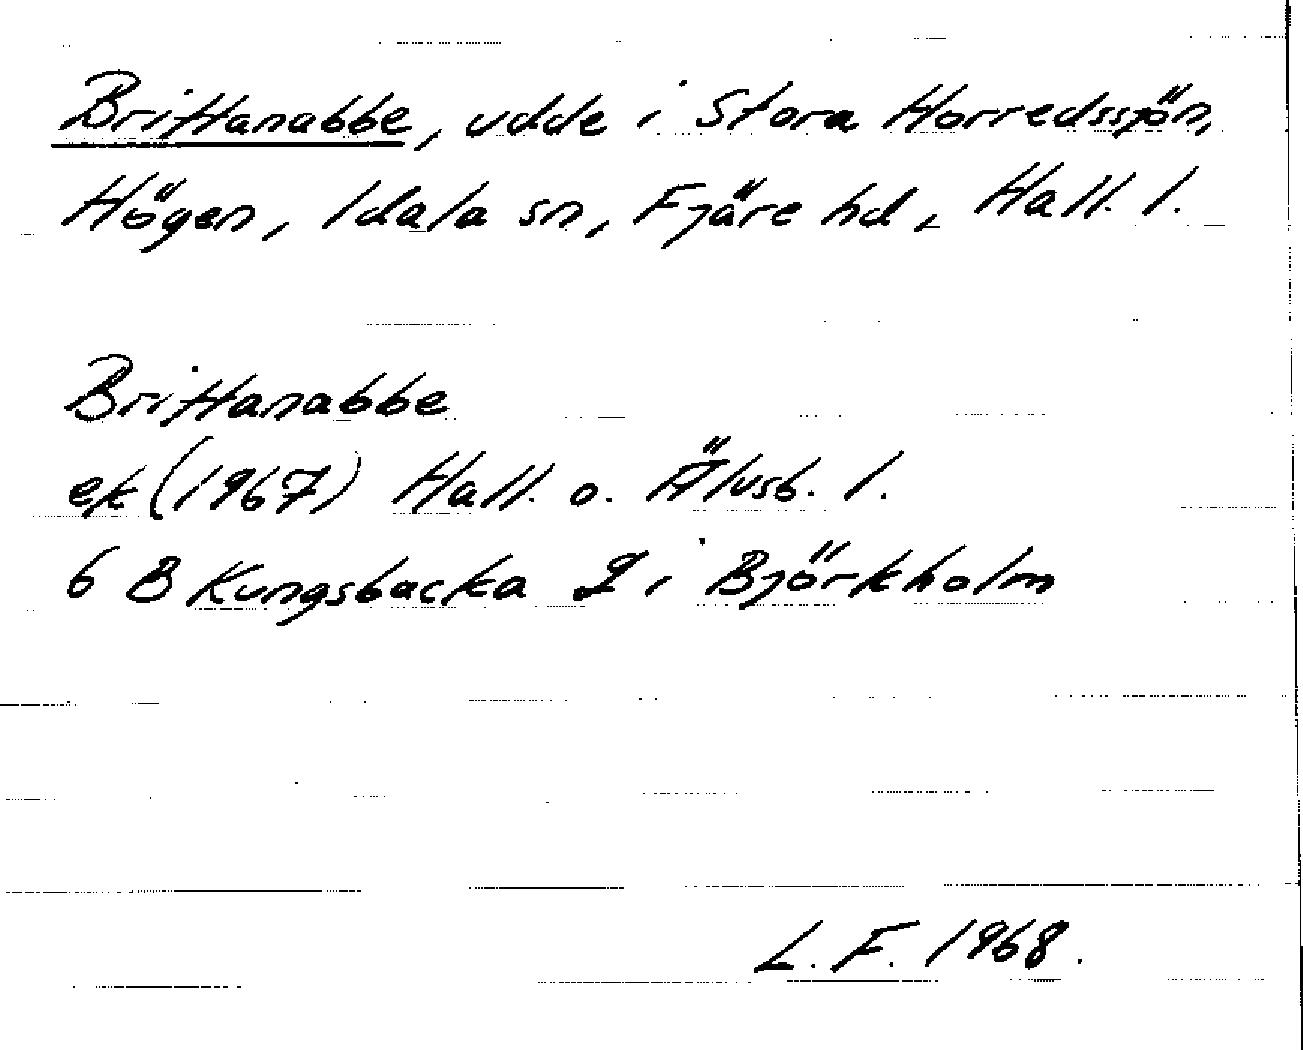 Brittanabbe, udde i Stora Horredssjön,
Högen, Idala sn, Fjäre hd, Hall. l.
Brittanabbe
ek (1967) Hall. o. Älvsb. l.
6 B Kungsbacka 2 i Björkholm
L. F. 1968.